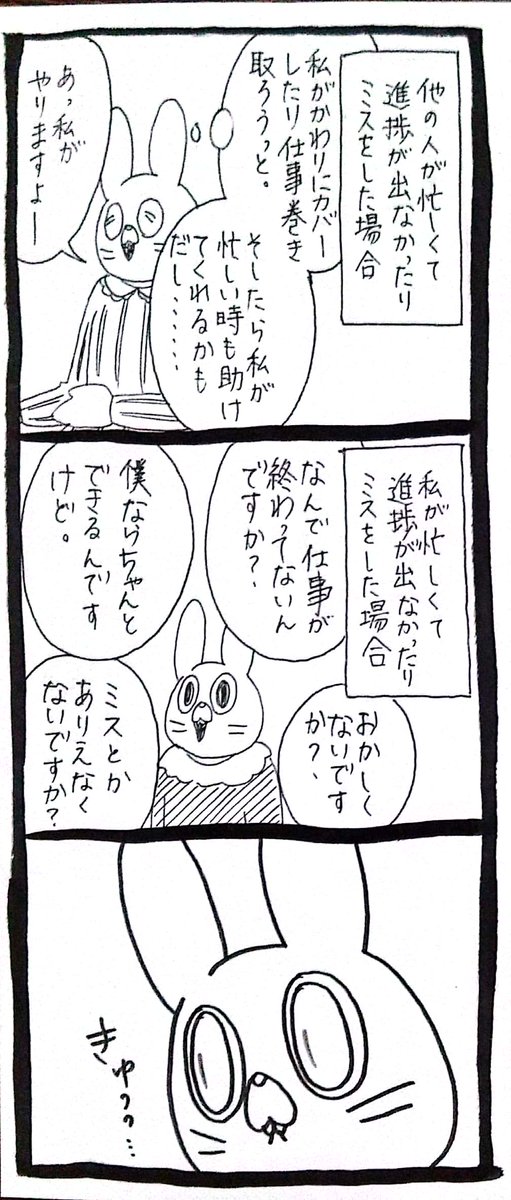 他の人が忙しくて
進捗が出なかったり
ミスをした場合
私がかわりにカバー
したり仕事巻き
取ろうっと。
そしたら私が
忙しい時も助け
てくれるかも
だし......
あっ私が
やりますよー
私が忙しくて
進捗が出なかったり
ミスをした場合
なんで仕事が
終わってないん
ですか?、
僕ならちゃんと
できるんです
けど。
おかしく
ないです
か?、
ミスとか
ありえなく
ないですか?
きゅっっ...